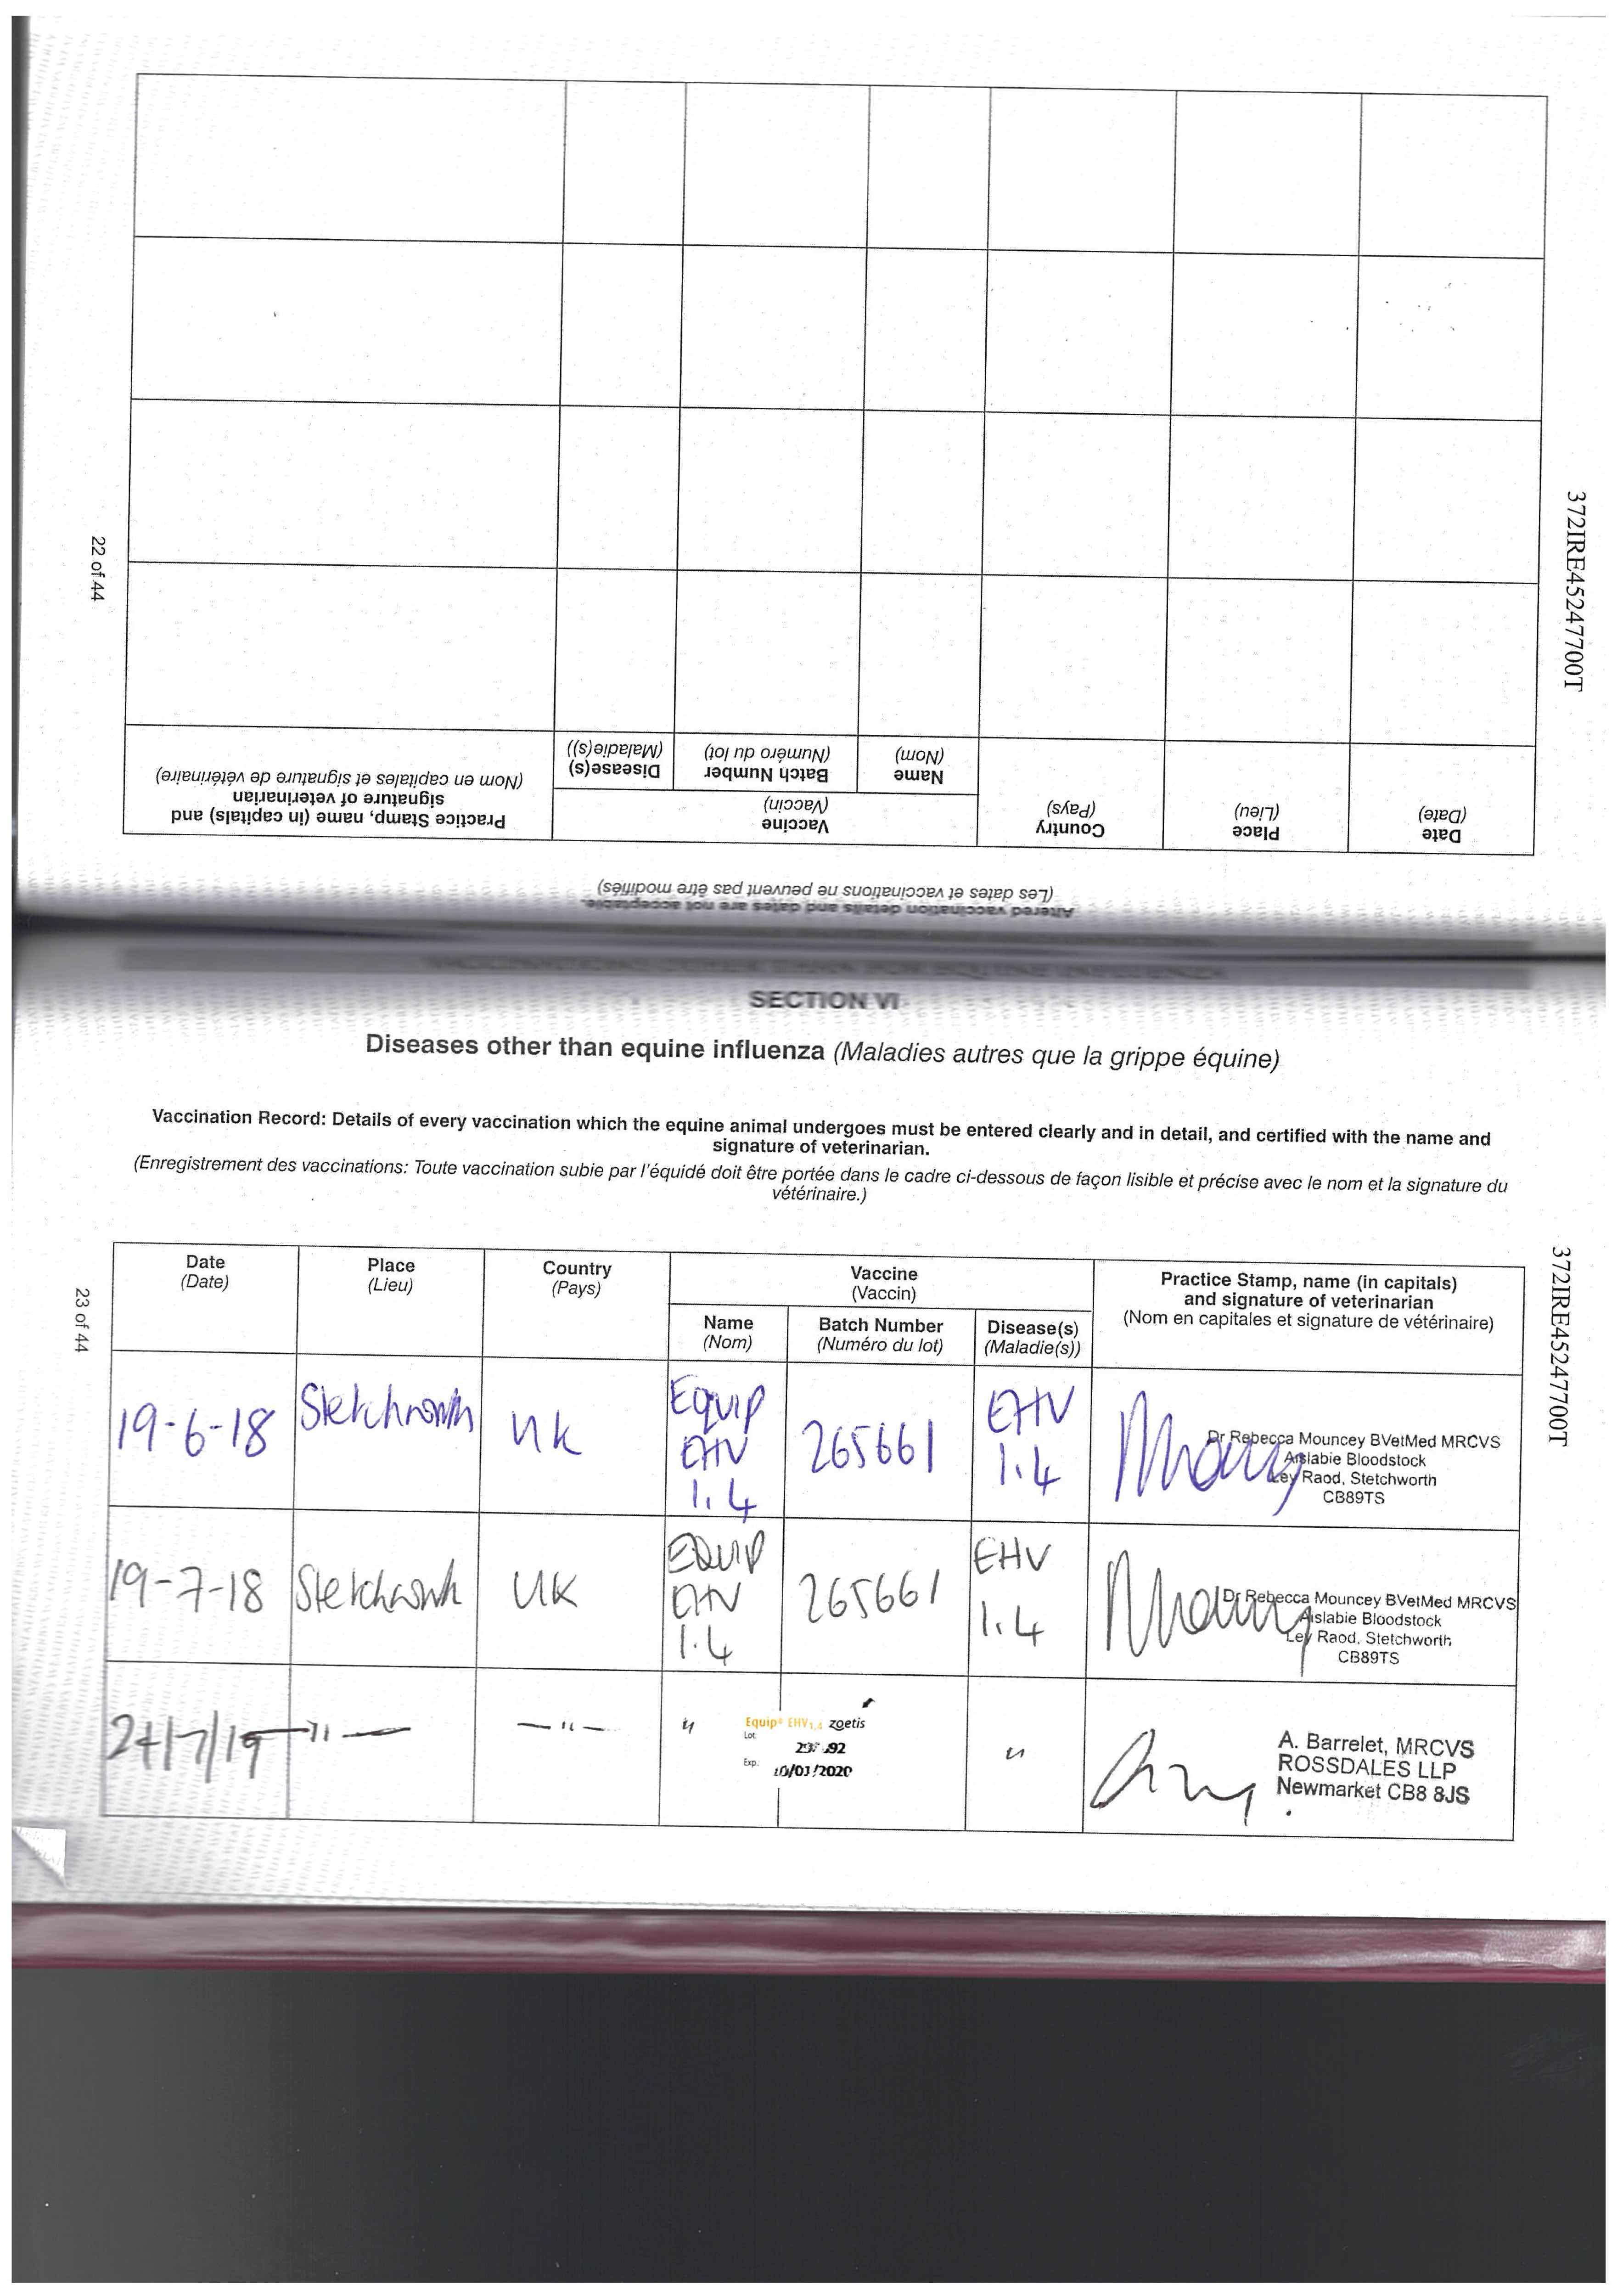 Altered vaccination details and dates are not acceptable.
(Les dates et vaccinations ne peuvent pas être modifiés)
Date
(Date)
Place
(Lieu)
Country
(Pays)
Vaccine
(Vaccin)
Name
(Nom)
Batch Number
(Numéro du lot)
Disease(s)
(Maladie(s))
Practice Stamp, name (in capitals) and
signature of veterinarian
(Nom en capitales et signature de vétérinaire)
22 of 44
372IRE45247700T
SECTION VI
Diseases other than equine influenza (Maladies autres que la grippe équine)
Vaccination Record: Details of every vaccination which the equine animal undergoes must be entered clearly and in detail, and certified with the name and
signature of veterinarian.
(Enregistrement des vaccinations: Toute vaccination subie par l'équidé doit être portée dans le cadre ci-dessous de façon lisible et précise avec le nom et la signature du
vétérinaire.)
23 of 44
372IRE45247700T
Date
(Date)
Place
(Lieu)
Country
(Pays)
Vaccine
(Vaccin)
Name
(Nom)
Batch Number
(Numéro du lot)
Disease(s)
(Maladie(s))
Practice Stamp, name (in capitals)
and signature of veterinarian
(Nom en capitales et signature de vétérinaire)
19-6-18
Stetchworth
UK
Equip
EHV
1.4
265661
EHV
1.4
Dr Rebecca Mouncey BVetMed MRCVS
Aislabie Bloodstock
Ley Raod, Stetchworth
CB89TS
19-7-18
Stetchworth
UK
EQUIP
EHV
1.4
265661
EHV
1.4
Dr Rebecca Mouncey BVetMed MRCVS
Aislabie Bloodstock
Ley Raod, Stetchworth
CB89TS
— " —
— " —
"
Equip® EHV1,4 zoetis
Lot:
Exp.
"
A. Barrelet, MRCVS
ROSSDALES LLP
Newmarket CB8 8JS